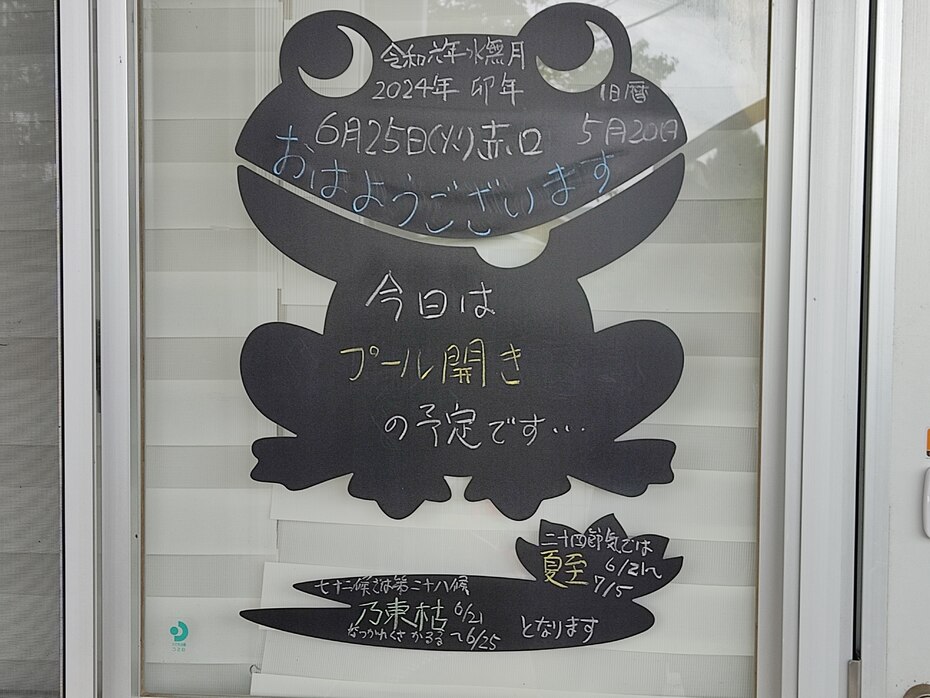 令和六年水無月
2024年 卯年
旧暦
6月25日(火)赤口 5月20日
おはようございます
今日は
プール開き
の予定です…
二十四節気では
夏至 6/21〜
7/5
七十二候では第二十八候
乃東枯 6/21
なつかれくさ かるる 〜6/25
となります